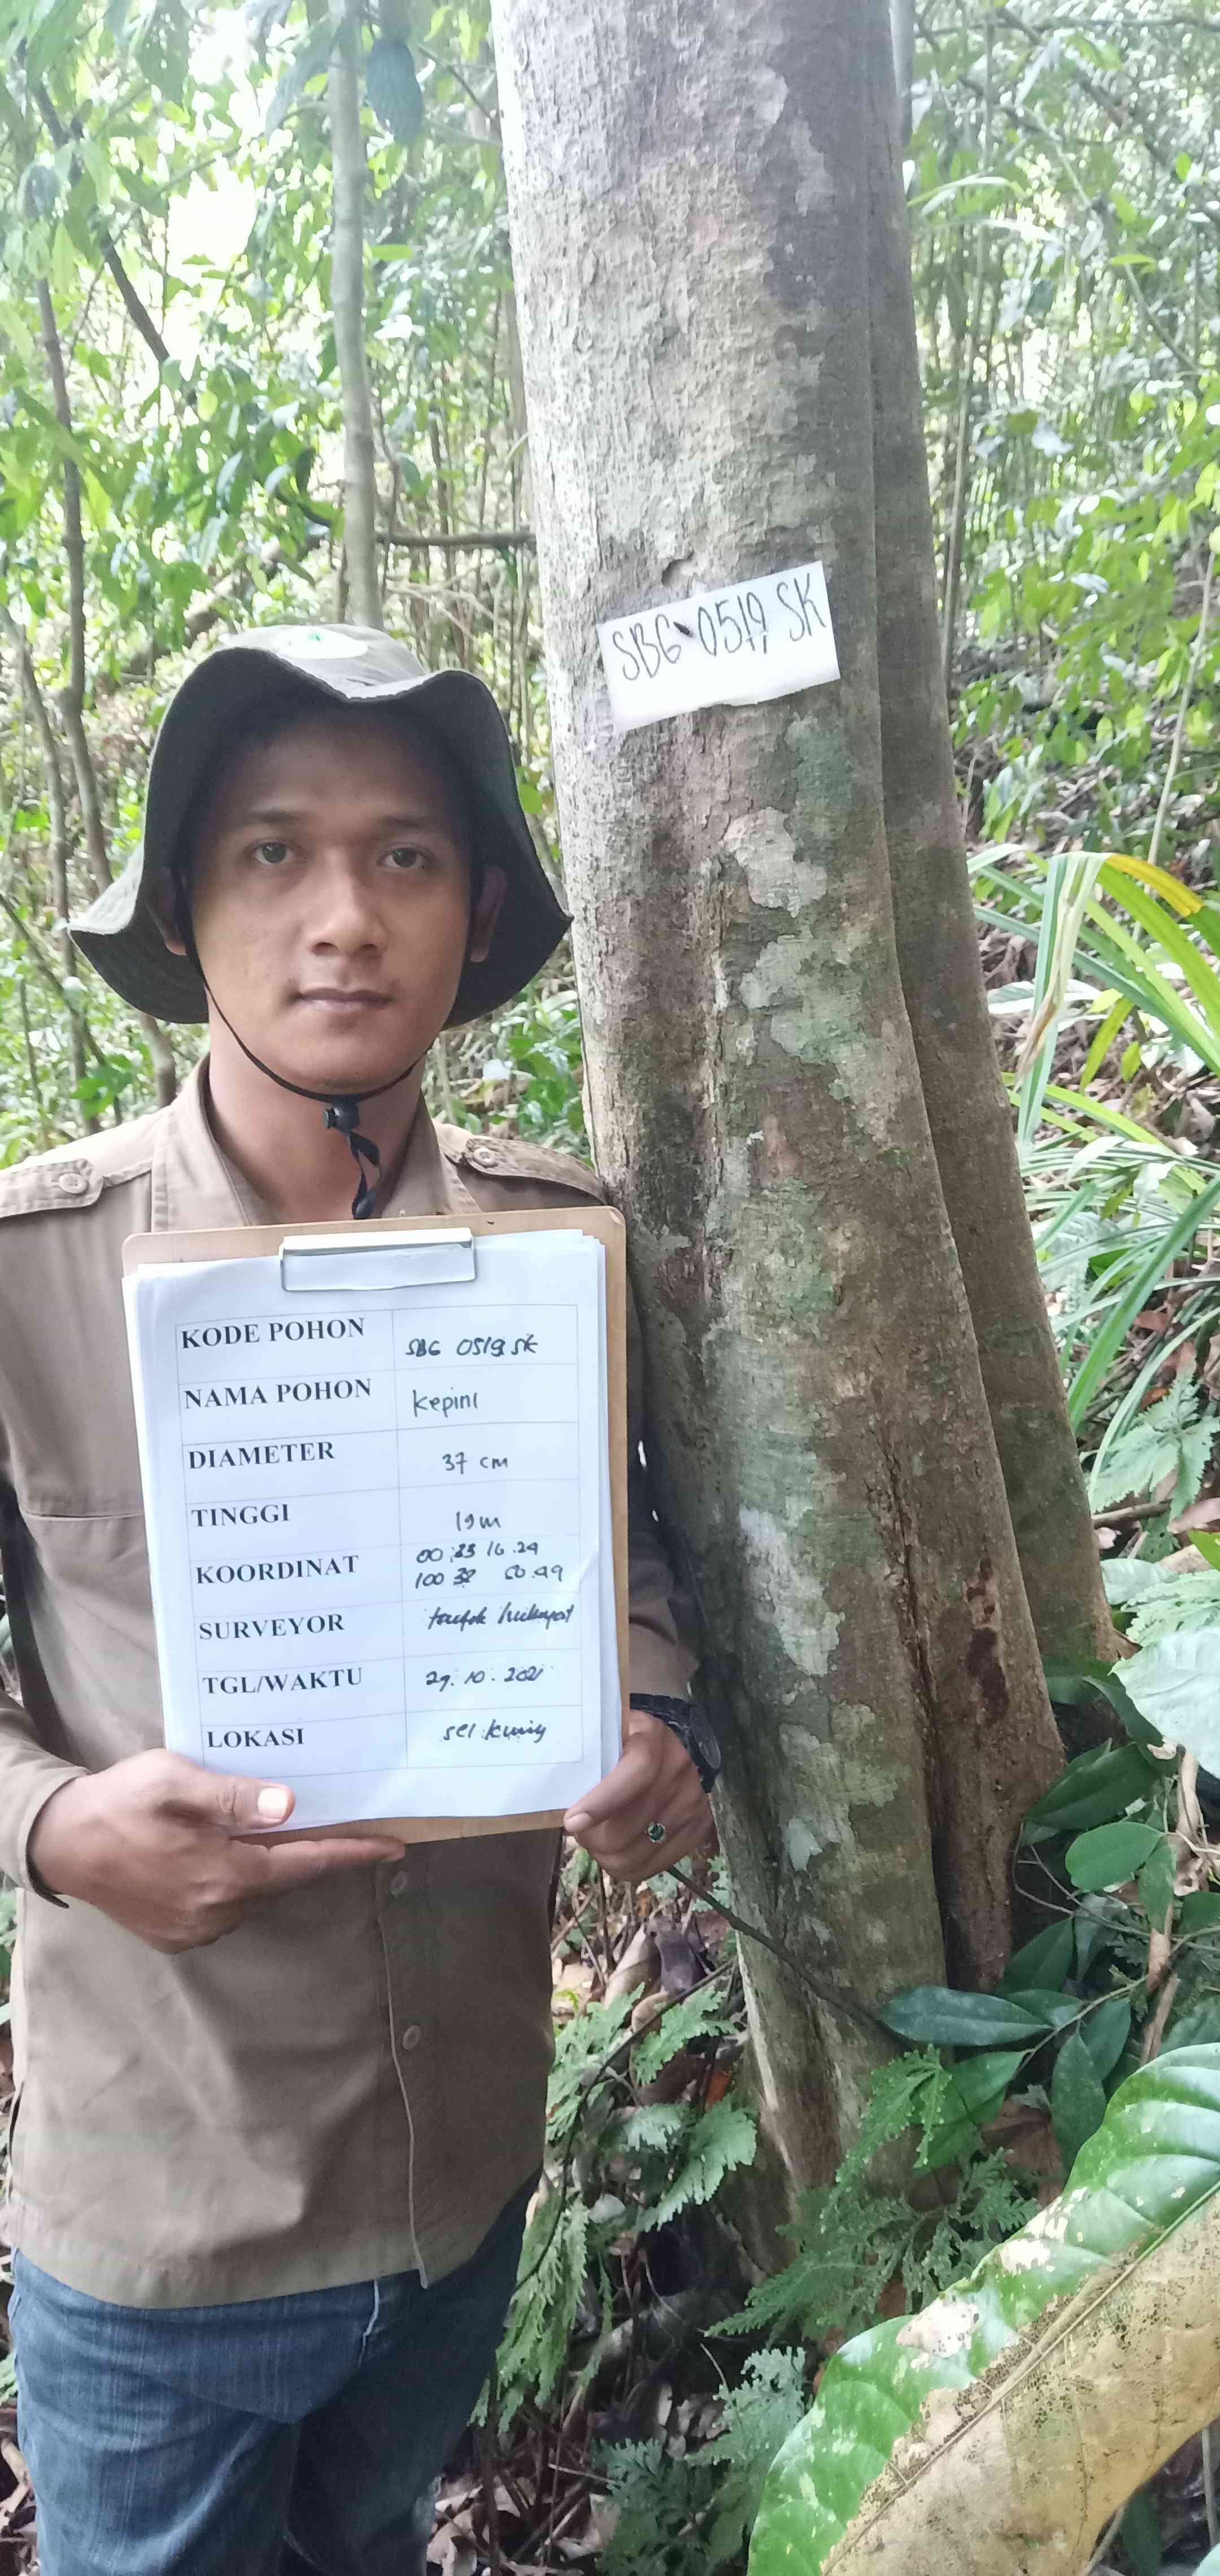 SBG 0519 SK
KODE POHON SBG 0519 SK
NAMA POHON kepini
DIAMETER 37 cm
TINGGI 19 m
KOORDINAT 00 33 16.29
100 32
SURVEYOR hidayat
TGL/WAKTU 29.10.2021
LOKASI sei kuning